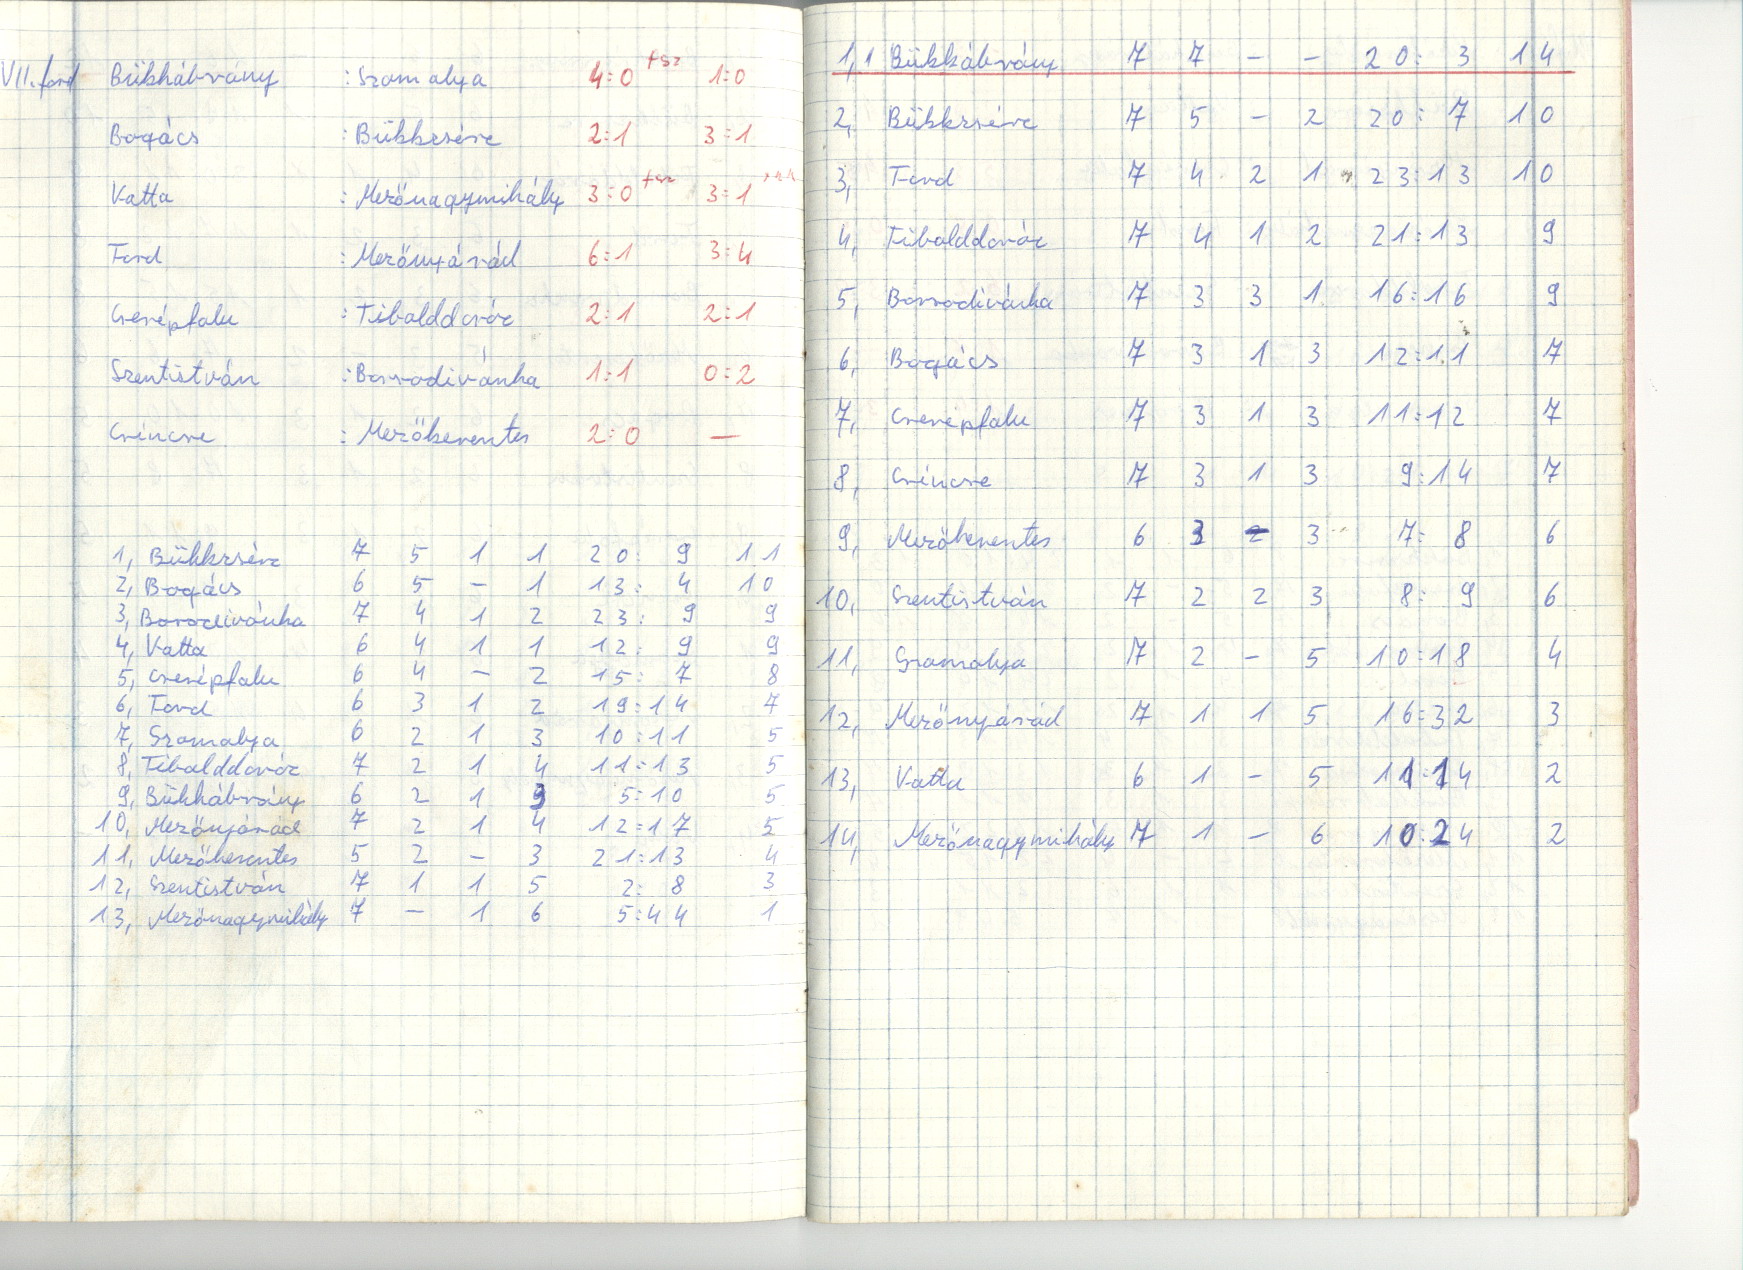 VII. ford Bükkábrány : Szomolya 4:0 fsz 1:0
Bogács : Bükkzsérc 2:1 3:1
Vatta : Mezőnagymihály 3:0 fsz 3:1
Tard : Mezőnyárád 6:1 3:4
Cserépfalu : Tibolddaróc 2:1 2:1
Szentistván : Borsodivánka 1:1 0:2
Csincse : Mezőkeresztes 2:0 —
1, Bükkzsérc 7 5 1 1 20: 9 11
2, Bogács 6 5 – 1 13: 4 10
3, Borsodivánka 7 4 1 2 23: 9 9
4, Vatta 6 4 1 1 12: 9 9
5, Cserépfalu 6 4 – 2 15: 7 8
6, Tard 6 3 1 2 19:14 7
7, Szomolya 6 2 1 3 10:11 5
8, Tibolddaróc 7 2 1 4 11:13 5
9, Bükkábrány 6 2 1 3 5:10 5
10, Mezőnyárád 7 2 1 4 12:17 5
11, Mezőkeresztes 5 2 – 3 21:13 4
12, Szentistván 7 1 1 5 2: 8 3
13, Mezőnagymihály 7 – 1 6 5:44 1
1, 1 Bükkábrány 7 7 – – 20: 3 14
2, Bükkzsérc 7 5 – 2 20: 7 10
3, Tard 7 4 2 1 23:13 10
4, Tibolddaróc 7 4 1 2 21:13 9
5, Borsodivánka 7 3 3 1 16:16 9
6, Bogács 7 3 1 3 12:11 7
7, Cserépfalu 7 3 1 3 11:12 7
8, Csincse 7 3 1 3 9:14 7
9, Mezőkeresztes 6 3 – 3 7: 8 6
10, Szentistván 7 2 2 3 8: 9 6
11, Szomolya 7 2 – 5 10:18 4
12, Mezőnyárád 7 1 1 5 16:32 3
13, Vatta 6 1 – 5 11:14 2
14, Mezőnagymihály 7 1 – 6 10:24 2